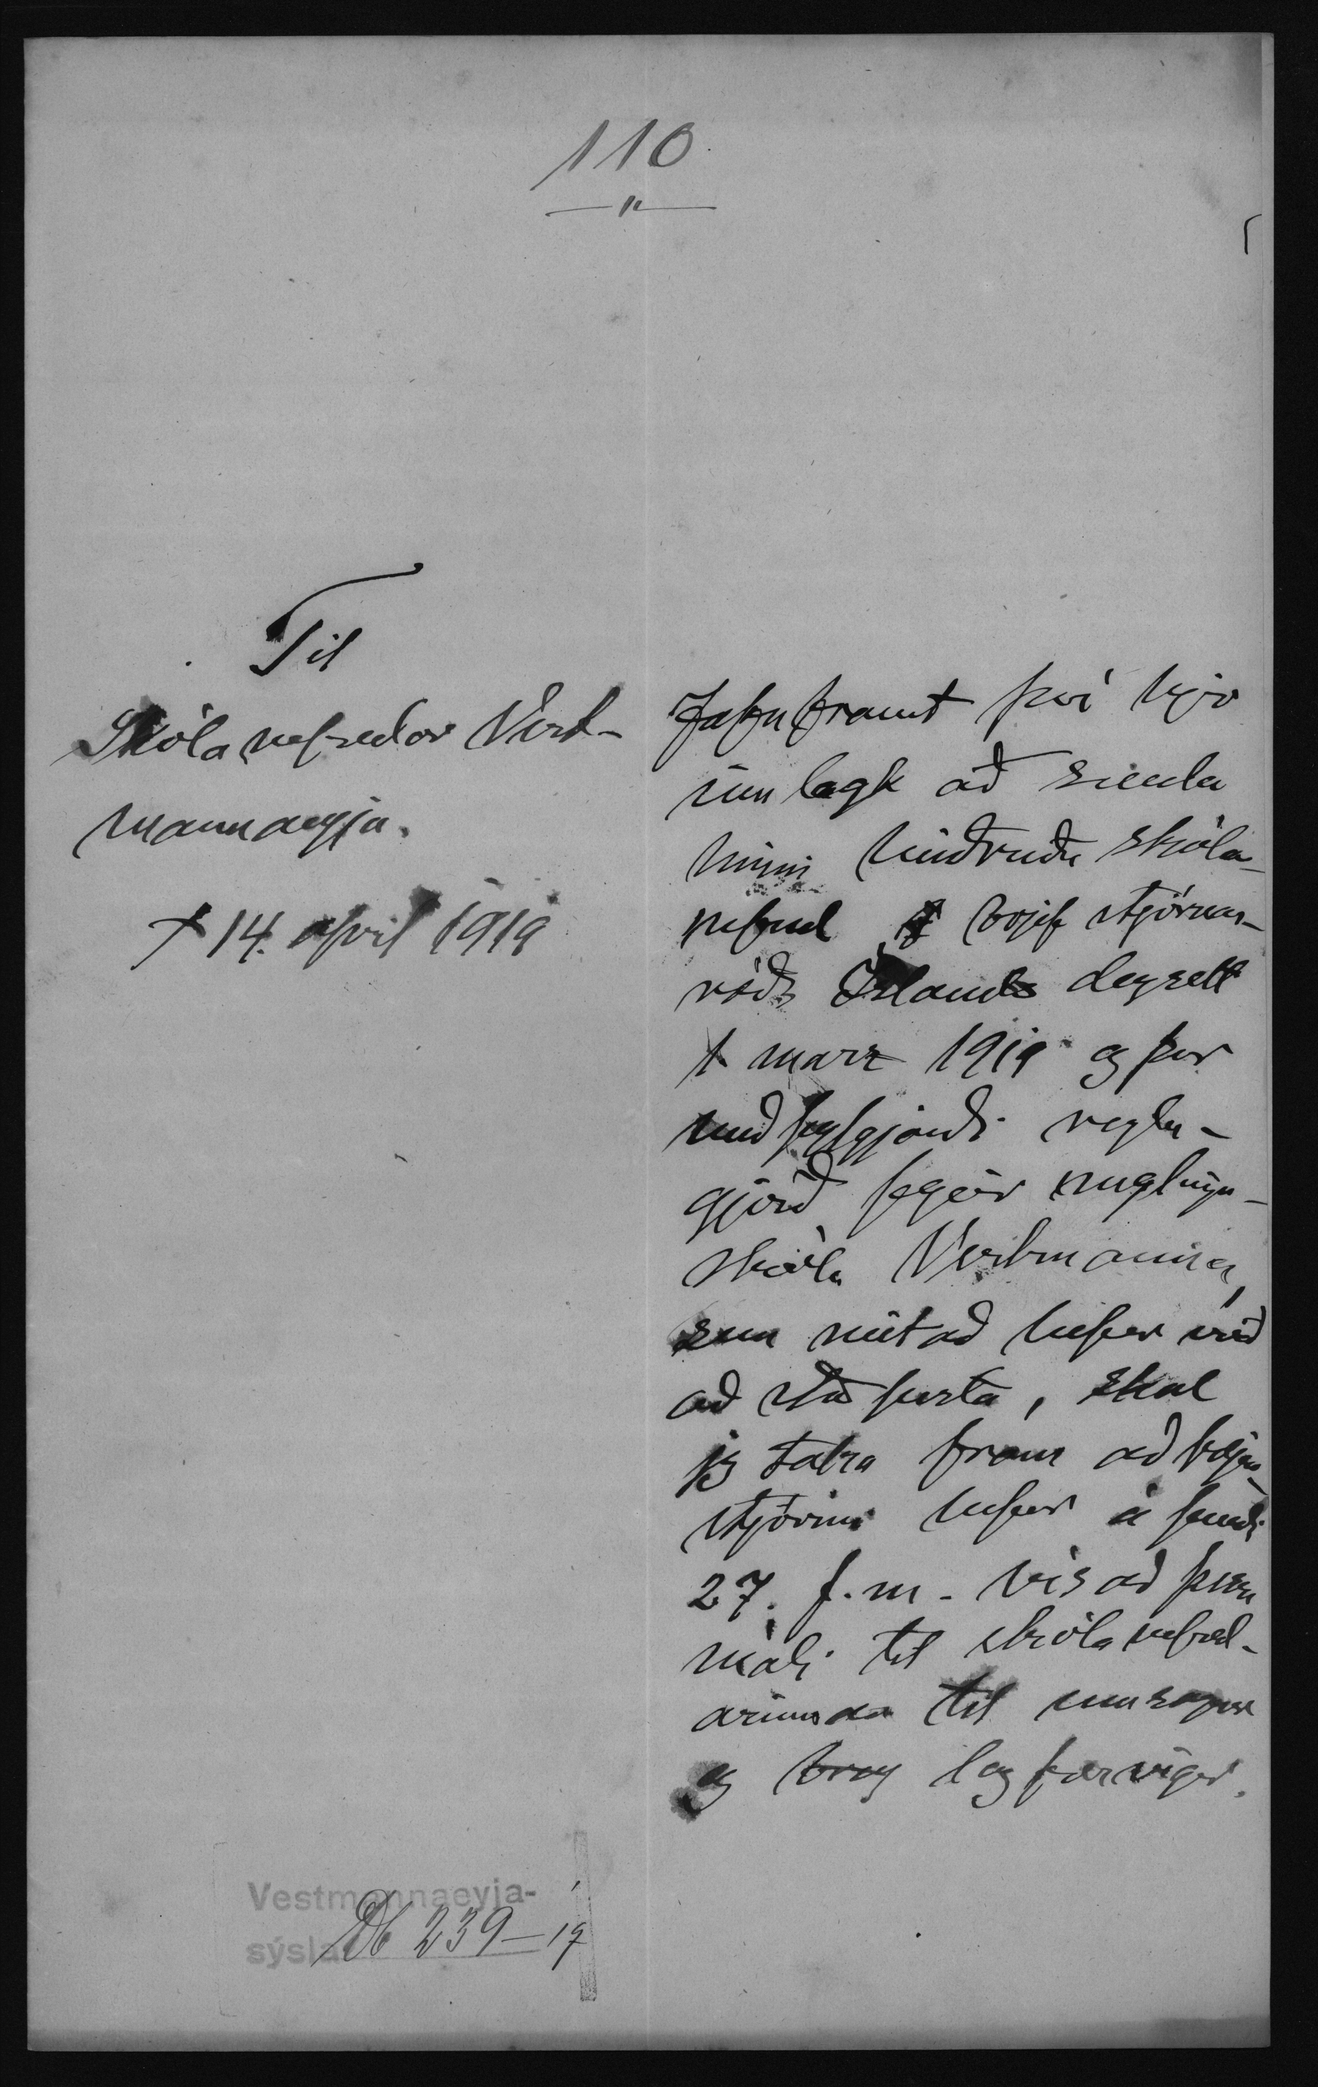 110
"
Til
Skólanefndar Vest-
mannaeyja.
14. apríl 1919
Jafnframt því hjer
með lagt að senda
hinni heiðruðu skóla-
nefnd brjef stjórnar-
ráðs Íslands dagsett
1 marz 1919 og þar
með fylgjandi reglu-
gjörð fyrir unglinga-
skóla Vestmanna,
sem mitað hefur við
að staðfesta, skal
jeg taka fram að bæjar
stjórnin hefur á fundi
27. f.m. vísað þessu
máli til skólanefnd-
arinnar til umsagnar
og lagfæringar.
Vestmannaeyja-
sýsla
Db 239-19